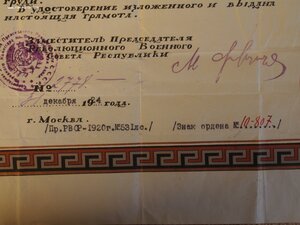 груди.
В удостоверение изложенного и выдана
настоящая грамота.
Заместитель Председателя
Революционного Военного
Совета Республики
№ 2778
декабря
года.
г. Москва.
/Пр.РВСР-1920г.№531лс./
/Знак ордена № 10-807./